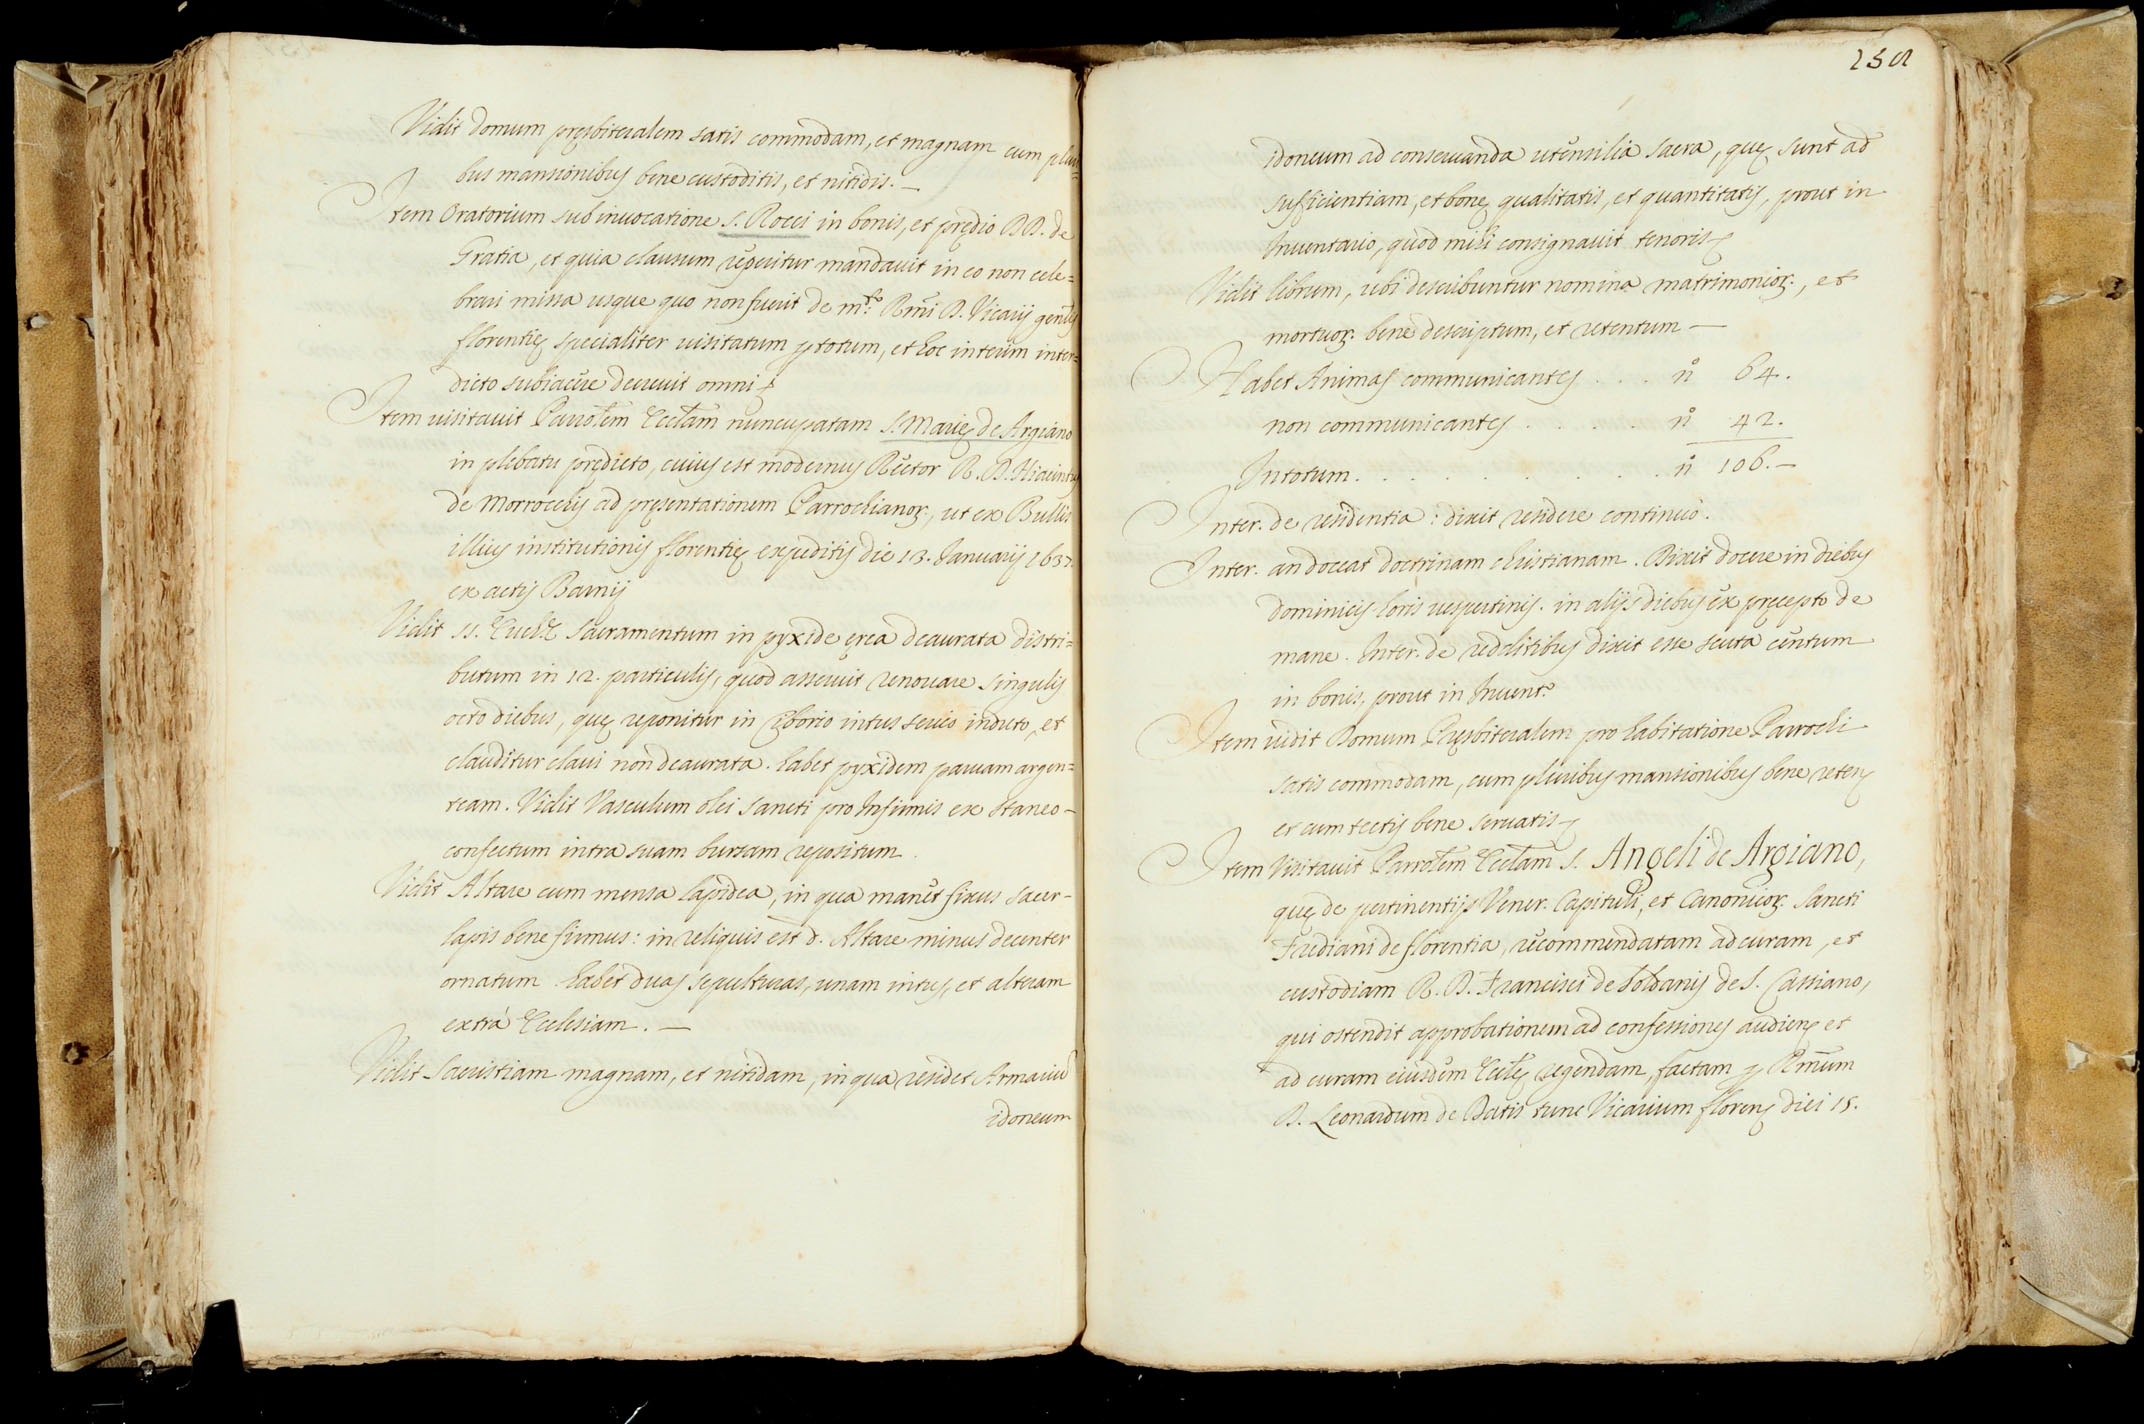 Vidit domum pręsbiteralem satis commodam, et magnam cum pluri=
bus mansionibus bene custoditis, et nitidis. —
Item Oratorium sub inuocatione S. Rocci in bonis, et prędio DD. de
Gratia, et quia clausum reperitur mandauit in eo non cele=
brari missa usque quo non fuerit de m.to Rmi D. Vicarij genlis
florentię specialiter uisitatum p totum, et hoc interim inter=
dicto subiacere decreuit omni
Item uisitauit Parrolem Ecclam nuncupatam S. Marię de Argiano
in plebatu prędicto, cuius est modernus Rector R. D. Hiacintus
de Morrocchis ad pręsentationem Parrochianor., ut ex Bullis
illius institutionis florentię expeditis die 13. Januarij 1637.
ex actis Barnij
Vidit SS. Euchē Sacramentum in pyxide ęrea deaurata distri=
butum in 12. particulis, quod asseruit renouare singulis
octo diebus, quę reponitur in Ciborio intus serico induto, et
clauditur claui non deaurata. habet pyxidem paruam argen=
team. Vidit Vasculum olei sancti pro Infirmis ex staneo —
confectum intra suam bursam repositum.
Vidit Altare cum mensa lapidea, in qua manet fixus sacer —
lapis bene firmus: in reliquis est d. Altare minus decenter
ornatum. habet duas sepulturas, unam intus, et alteram
extrà Ecclesiam. —
Vidit Sacristiam magnam, et nitidam, in qua residet Armariū
idoneum
idoneum ad conseruanda utensilia sacra, quę sunt ad
sufficientiam, et bonę qualitatis, et quantitatis, prout in
Inuentario, quod mihi consignauit tenoris
Vidit librum, ubi describuntur nomina matrimonior., et
mortuor. bene descriptum, et retentum —
Habet Animas communicantes . . . n° 64.
non communicantes . . . . . n° 42.
In totum . . . . . . . . . . n° 106. —
Inter. de residentia: dixit residere continuo.
Inter. an doceat doctrinam christianam. Dixit docere in diebus
dominicis horis uespertinis. in alijs diebus ex pręcepto de
mane. Inter. de redditibus dixit esse scuta centum
in bonis, prout in Inuent.°
Item uidit Domum Pręsbiteralem pro habitatione Parrochi
satis commodam, cum pluribus mansionibus bene reten
et cum tectis bene seruatis
Item Visitauit Parrolem Ecclam S. Angeli de Argiano,
quę de pertinentijs Vener. Capituli, et Canonicor. Sancti
Frediani de florentia, recommendatam ad curam, et
custodiam R. D. Francisci de Soldanis de S. Cassiano,
qui ostendit approbationem ad confessiones audien et
ad curam eiusdem Ecclę regendam, factam p Rmum
D. Leonardum de Datis tunc Vicarium floren diei 15.